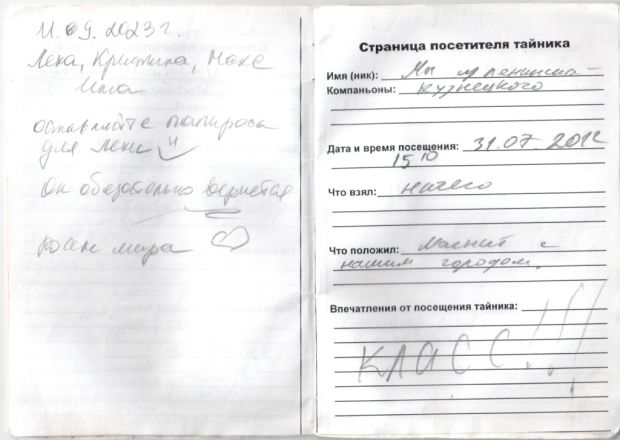 11.09.2023г.
Леха, Кристина, Макс
Инга
оставляйте папиросы
для Лехи
он обязательно вернется
Всем мира
Страница посетителя тайника
Имя (ник): Мы из Ленинска-
Компаньоны: Кузнецкого
Дата и время посещения: 31.07.2012
15 10
Что взял: Ничего
Что положил: Магнит с
нашим городом.
Впечатления от посещения тайника:
КЛАСС!!!